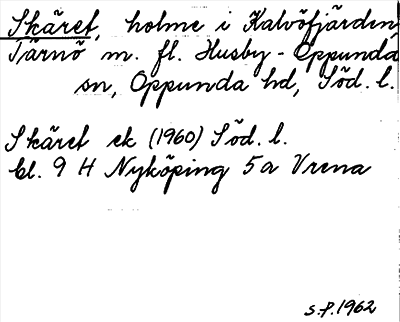 Skäret, holme i Kalvöfjärden,
Tärnö m. fl. Husby-Oppunda
sn, Oppunda hd, Söd. l.
Skäret ek (1960) Söd. l.
bl. 9 H Nyköping 5a Vrena
S.P. 1962